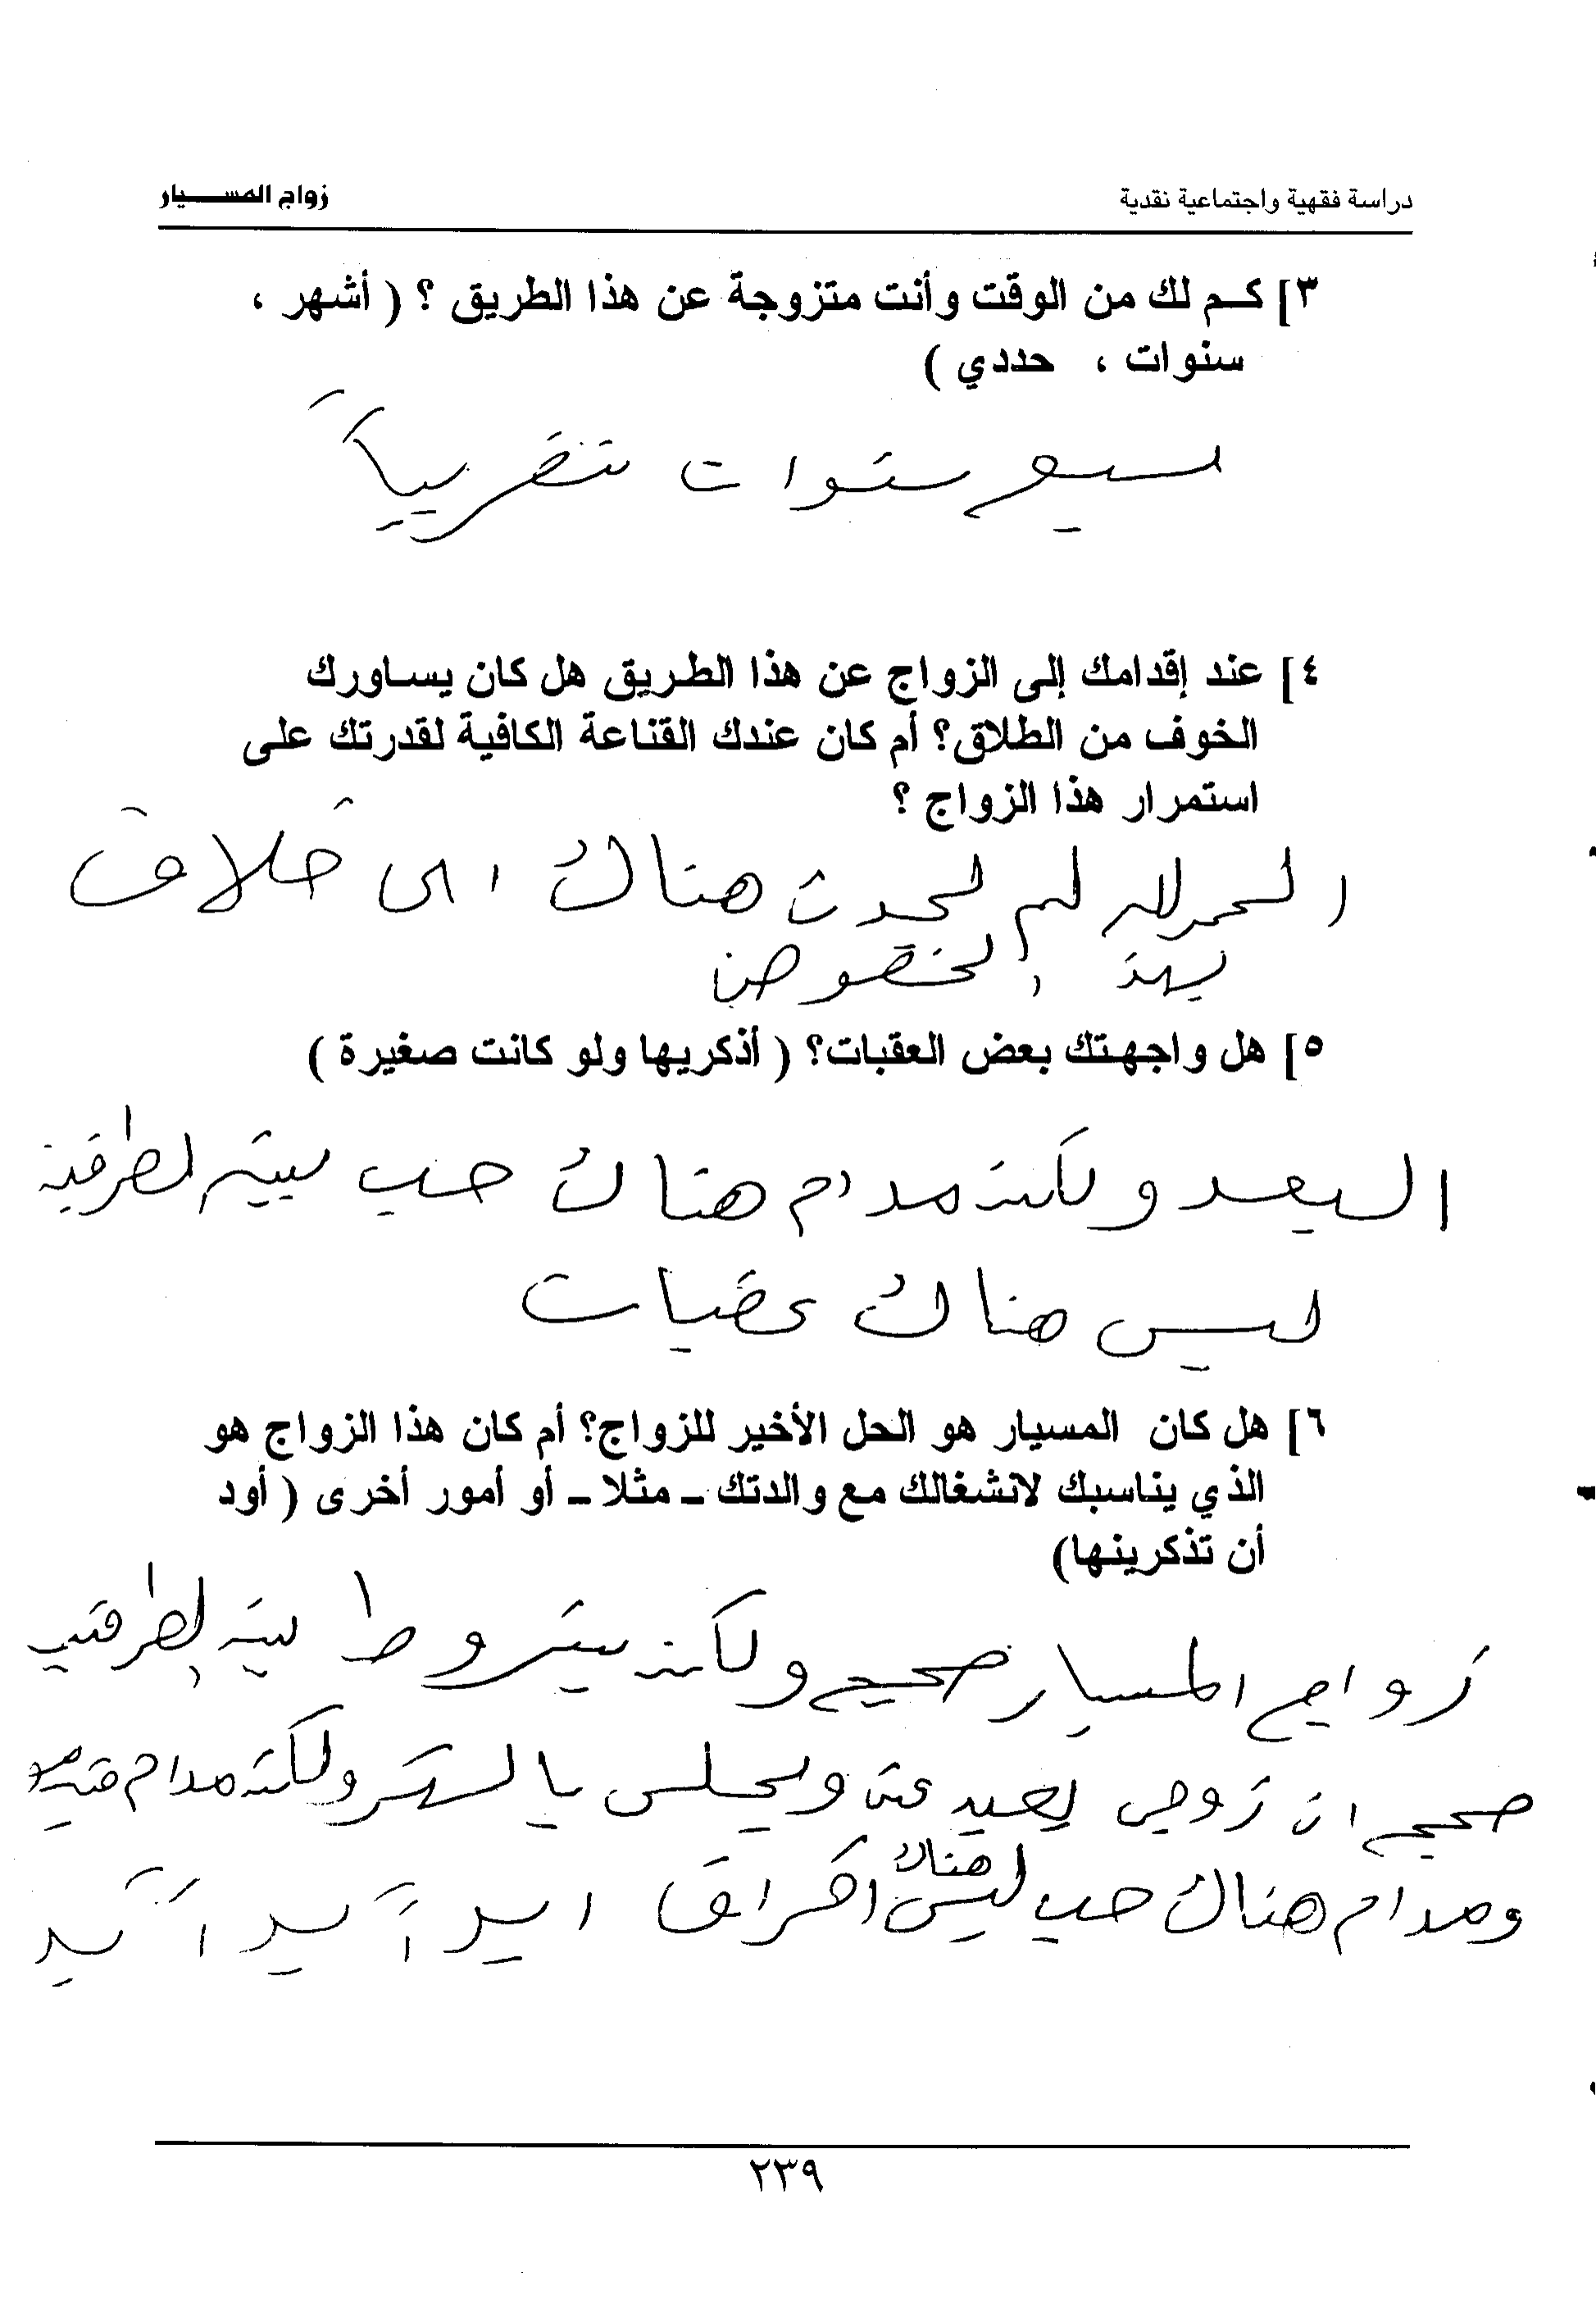 دراسة فقهية واجتماعية نقدية زواج المسيار
٣] كم لك من الوقت وأنت متزوجة عن هذا الطريق ؟ ( أشهر ،
سنوات ، حددي )
سبع سنوات تقريباً
٤] عند إقدامك إلى الزواج عن هذا الطريق هل كان يساورك
الخوف من الطلاق؟ أم كان عندك القناعة الكافية لقدرتك على
استمرار هذا الزواج ؟
الحمدلله لم يحدث هناك اى خلاف
بهذ الخصوص
٥] هل واجهتك بعض العقبات؟ ( أذكريها ولو كانت صغيرة )
البعد ولكن مدام هناك حب بين الطرفين
ليس هناك عقبات
٦] هل كان المسيار هو الحل الأخير للزواج؟ أم كان هذا الزواج هو
الذي يناسبك لانشغالك مع والدتك ـ مثلا ـ أو أمور أخرى ( أود
أن تذكرينها)
زواج المسيار صحيح ولكن بشروط بين الطرفين
صحيح ان زوجي بعيد عني ويجلس بالشهر ولكن مدام
ومدام هناك حب ليس هناك افراق ابد أبد ابد
٢٣٩